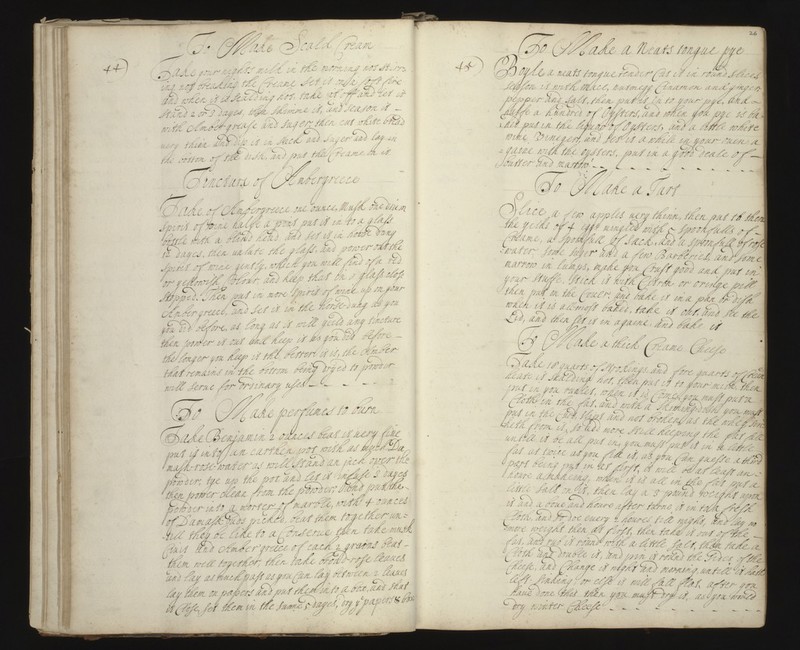 44
To Make Scald Cream
Take your nights milk in the morning not stirr
ing nor breaking the Creame set it on a soft fire
and when it is scalding hot, take it off and let it
stand 2 or 3 dayes, then skimme it, and season it
with Ambergrease and suger; then cut white bread
very thinn and dip it in Sack and suger and lay in
the bottom of the dish, and put the Creame on it
Tincture of Ambergreece
Take of Ambergreece one ounce, Musk one dram
spirit of wine halfe a pint put it in to a glass
bottle with a blind head and set it in horse dung
12 dayes, then unlute the glass, and power out the
spirit of wine gently, which you will find of a red
or yellowish Colour and keep that in a glass close
stopped; then put in more spirit of wine up on your
Ambergreece, and set it in the horse dung as you
you did before, as long as it will yield any tincture
then power it out and keep it as you did before
the longer you keep it the better it is, the Amber
that remains in the bottom being dryed to powder
will serve for ordinary uses
To Make perfumes to burn
Take Benjamin 2 ounces beat it very fine
put it in to an earthen pot with as much Da
mask rose water as will stand an inch over the
powder, tye up the pot and let it infuse 3 dayes
then power cleane from the powder; then put the
powder into a morter of marble with 4 ounces
of Damask buds picked, beat them together un=
till they be like to a Conserve then take musk
Civit and Ambergreece of each 2 graines, beat
them well together, then take broad rose leaves
and lay as much past as you can lay between 2 leaves
lay them on papers and put them into a box, and shut
it Close, set them in the sunne 5 dayes, dry ye papers &
45
To Make a Neats tongue pye
Boyle a neats tongue tender Cut it in round slices
season it with Mace, nutmegg Cinamon and ginger
pepper and salt, then put it in to your pye, and
halfe a hundred of Oysters, and when you pye is
put in the liquor of Oysters, and a little white
wine Vinegar, and set it a while in your oven a
gaine with the oysters, put in a good deale of
Butter and marrow
To Make a Tart
Slice a few apples very thinn, then put to them
the yelks of 4 eggs mingled with 5 spoonfulls of
Creame, a spoonfull of Sack, and a spoonfull of rose
water, some suger and a few Barberies, and some
marrow in lumps, make you Crust good and put in
your stuffe. Stick it with Citron or orange pill
then put on the Cover; and bake it in a pan or dish
when it is allmost baked, take it out, and
Lid, and then set it in againe and bake it
To Make a thick Creame Cheese
Take 18 quarts of Strokings and fore quarts of Cream
heate it skalding hot, then put it to your milk then
put in you runnet, when it is Come, you must put a
Cloth in the fat, and with a skimming dish you must
put in the Curd
from it, so add more still
untill it be all put in, you must put it in a little
fat as
it will be at least an
houre a making, when it is all in the fat put a
little salt on it, then lay a 5 pound weight upon
it and a Cupl and houre after turne it in to a fresh
Cloth and so doe every 2 houres till night, and lay no
more weight then at first, then take it out of the
fat, and rub it round with a little salt, then take a
Cloth and double it, and
Cheese, and Change it night and morning untill it hath
left sinking; or else it will fall flat, after you
have done this then you must dry it, as you would
dry winter Cheese